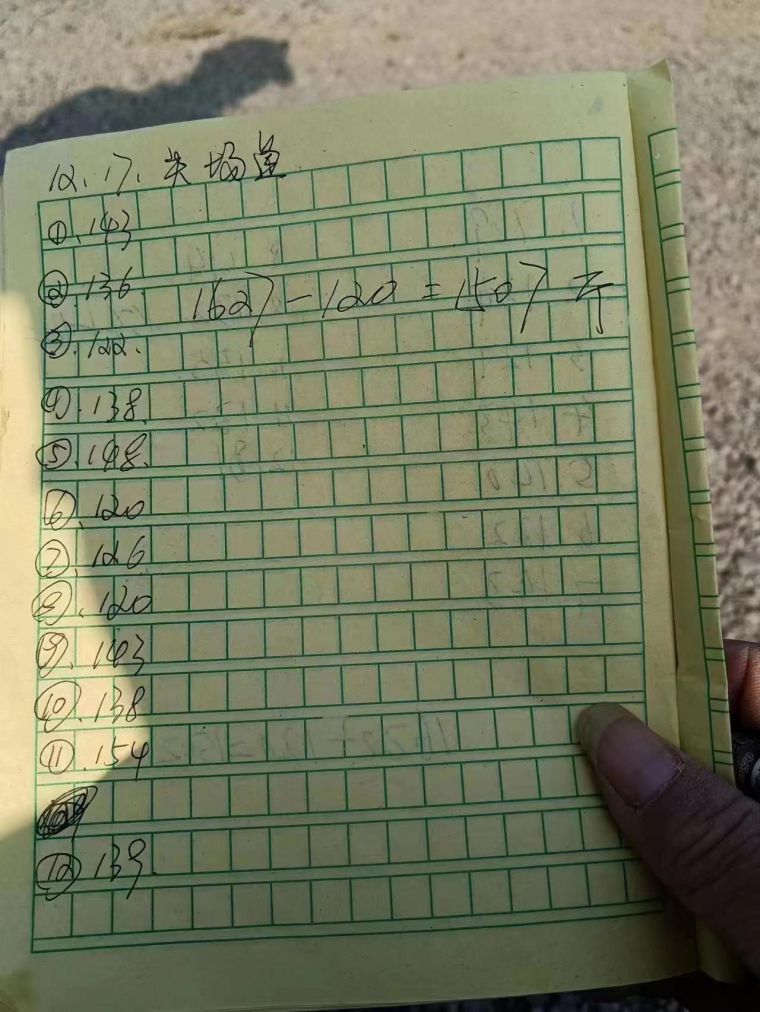 12.17. 场
①.143
②.136
1627-120=1507斤
③.122.
④.138.
⑤.148.
⑥.120
⑦.126.
⑧.120
⑨.143
⑩.138
⑪.154
⑫.139.